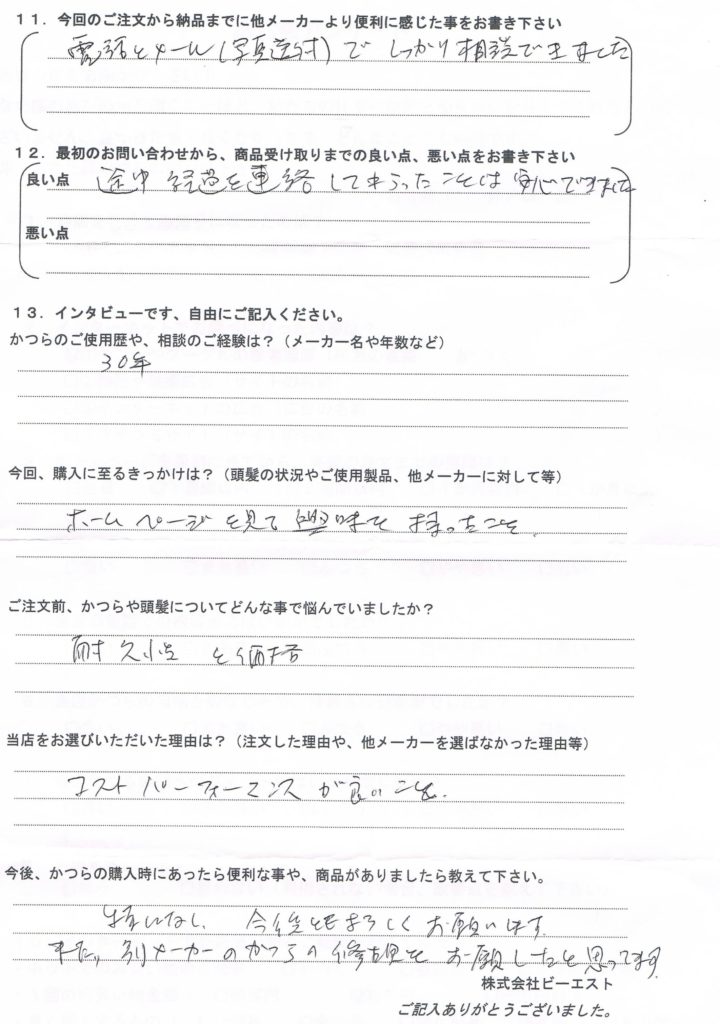 １１．今回のご注文から納品までに他メーカーより便利に感じた事をお書き下さい
電話とメール(写真送付)でしっかり相談できました
１２．最初のお問い合わせから、商品受け取りまでの良い点、悪い点をお書き下さい
良い点 途中経過を連絡してもらったことは安心できました
悪い点
１３．インタビューです、自由にご記入ください。
かつらのご使用歴や、相談のご経験は？（メーカー名や年数など）
30年
今回、購入に至るきっかけは？（頭髪の状況やご使用製品、他メーカーに対して等）
ホームページを見て興味を持ったこと.
ご注文前、かつらや頭髪についてどんな事で悩んでいましたか？
耐久性と価格
当店をお選びいただいた理由は？（注文した理由や、他メーカーを選ばなかった理由等）
コストパーフォーマンスが良いこと.
今後、かつらの購入時にあったら便利な事や、商品がありましたら教えて下さい。
特になし、今後ともよろしくお願います.
また、別メーカーのかつらの修理をお願したと思ってます.
株式会社ビーエスト
ご記入ありがとうございました。